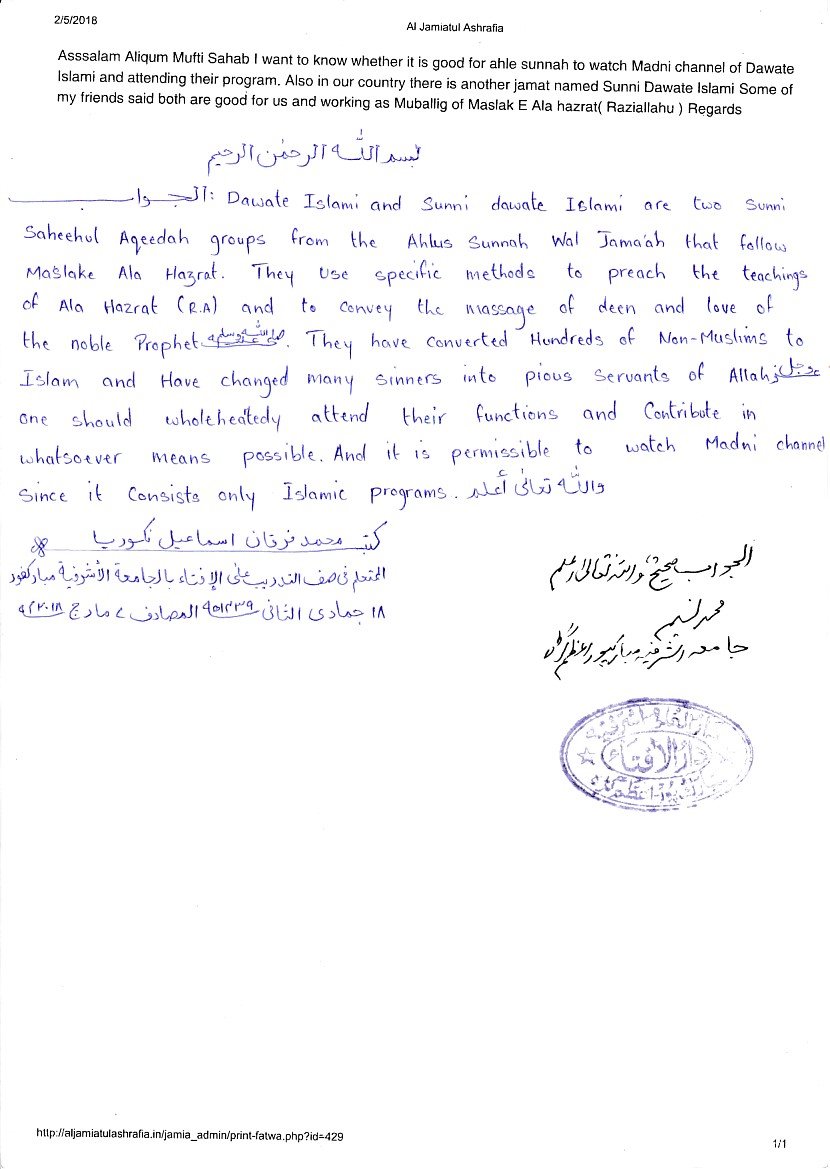 2/5/2018
Al Jamiatul Ashrafia
Asssalam Aliqum Mufti Sahab I want to know whether it is good for ahle sunnah to watch Madni channel of Dawate
Islami and attending their program. Also in our country there is another jamat named Sunni Dawate Islami Some of
my friends said both are good for us and working as Muballig of Maslak E Ala hazrat( Raziallahu ) Regards
بسم الله الرحمٰن الرحيم
الجواب: Dawate Islami and Sunni dawate Islami are two Sunni
Saheehul Aqeedah groups from the Ahlus Sunnah Wal Jama'ah that follow
Maslake Ala Hazrat. They use specific methods to preach the teachings
of Ala Hazrat (R.A) and to convey the massage of deen and love of
the noble Prophet صلى الله عليه وسلم. They have converted Hundreds of Non-Muslims to
Islam and Have changed many sinners into pious servants of Allah عزوجل
one should wholeheatedy attend their functions and Contribute in
whatsoever means possible. And it is permissible to watch Madni channel
Since it Consists only Islamic programs. والله تعالىٰ أعلم
كتبه محمد فرقان اسماعيل
المتعلم في صف التدريب على الإفتاء بالجامعة الأشرفية مباركفور
١٨ جمادى الثاني ١٤٣٩ھ المصادف ٧ مارچ ٢٠١٨ء
الجواب صحيح والله تعالىٰ اعلم
محمد نسيم
جامعه اشرفيه مباركپور اعظم گڑھ
دار الافتاء
http://aljamiatulashrafia.in/jamia_admin/print-fatwa.php?id=429
1/1